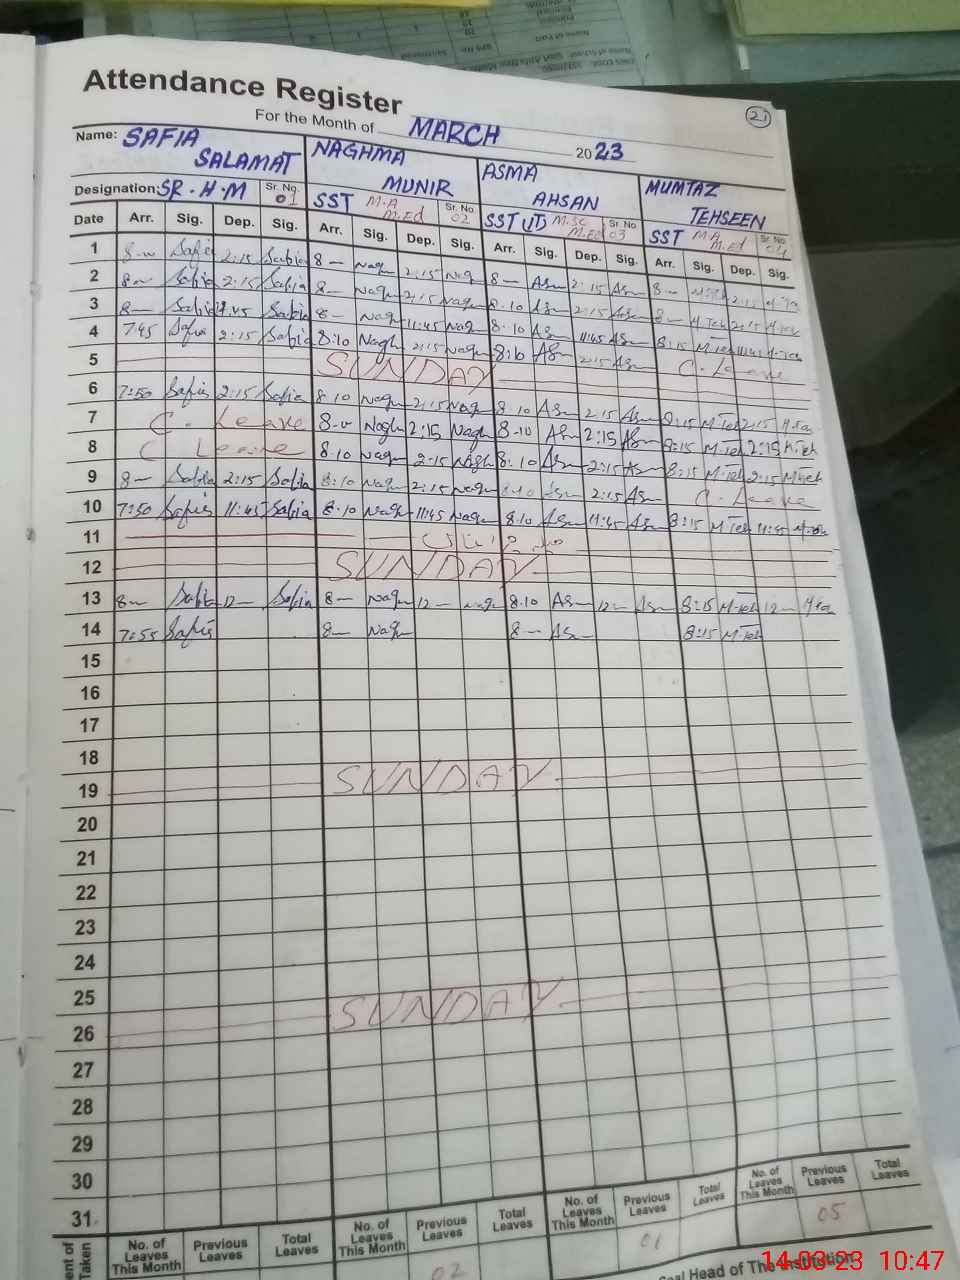 Attendance Register
21
For the Month of MARCH 2023
Name: SAFIA SALAMAT NAGHMA MUNIR ASMA AHSAN MUMTAZ TEHSEEN
Designation: SR.H.M Sr. No. 01 SST M.A M.Ed Sr. No 02 SST M.SC M.Ed Sr. No 03 SST M.A M.Ed Sr. No 04
Date Arr. Sig. Dep. Sig. Arr. Sig. Dep. Sig. Arr. Sig. Dep. Sig. Arr. Sig. Dep. Sig.
1 8- Safia 2:15 Safia 8- Nagh 2:15 Nag 8- Asm 2:15 Asm 8- M.Teh 2:15
2 8- Safia 2:15 Safia 8- Nagh 2:15 Nagh 8.10 Asm 2:15 Asm 8- M.Teh 2:15
3 8- Safia 11:45 Safia 8- Nagh 11:45 Nagh 8.10 Asm 11:45 Asm 8:15 M.Teh 11:45
4 7:45 Safia 2:15 Safia 8:10 Nagh 2:15 Nagh 8:10 Asm 2:15 Asm C. Leave
5 SUNDAY
6 7:50 Safia 2:15 Safia 8.10 Nagh 2:15 Nagh 8.10 Asm 2:15 Asm 8:15 M.Teh 2:15
7 C. Leave 8- Nagh 2:15 Nagh 8-10 Asm 2:15 Asm 8:15 M.Teh 2:15 M.Teh
8 C Leave 8.10 Nagh 2:15 Nagh 8:10 Asm 2:15 Asm 8:15 M.Teh 2:15 M.Teh
9 8- Safia 2:15 Safia 8:10 Nagh 2:15 Nagh 8:10 Asm 2:15 Asm C. Leave
10 7:50 Safia 11:45 Safia 8.10 Nagh 11:45 Nagh 8.10 Asm 11:45 Asm 8:15 M.Teh 11:45 M.Teh
11
12 SUNDAY
13 8- Safia 12- Safia 8- Nagh 12- Nagh 8.10 Asm 12- Asm 8:15 M.Teh 12-
14 7:55 Safia 8- Nagh 8- Asm 8:15 M.Teh
15
16
17
18
19 SUNDAY
20
21
22
23
24
25
26 SUNDAY
27
28
29
30
31
No. of Leaves This Month Previous Leaves Total Leaves No. of Leaves This Month Previous Leaves Total Leaves No. of Leaves This Month Previous Leaves Total Leaves No. of Leaves This Month Previous Leaves Total Leaves
02 01 05
Head of The Institution
14-03-23 10:47